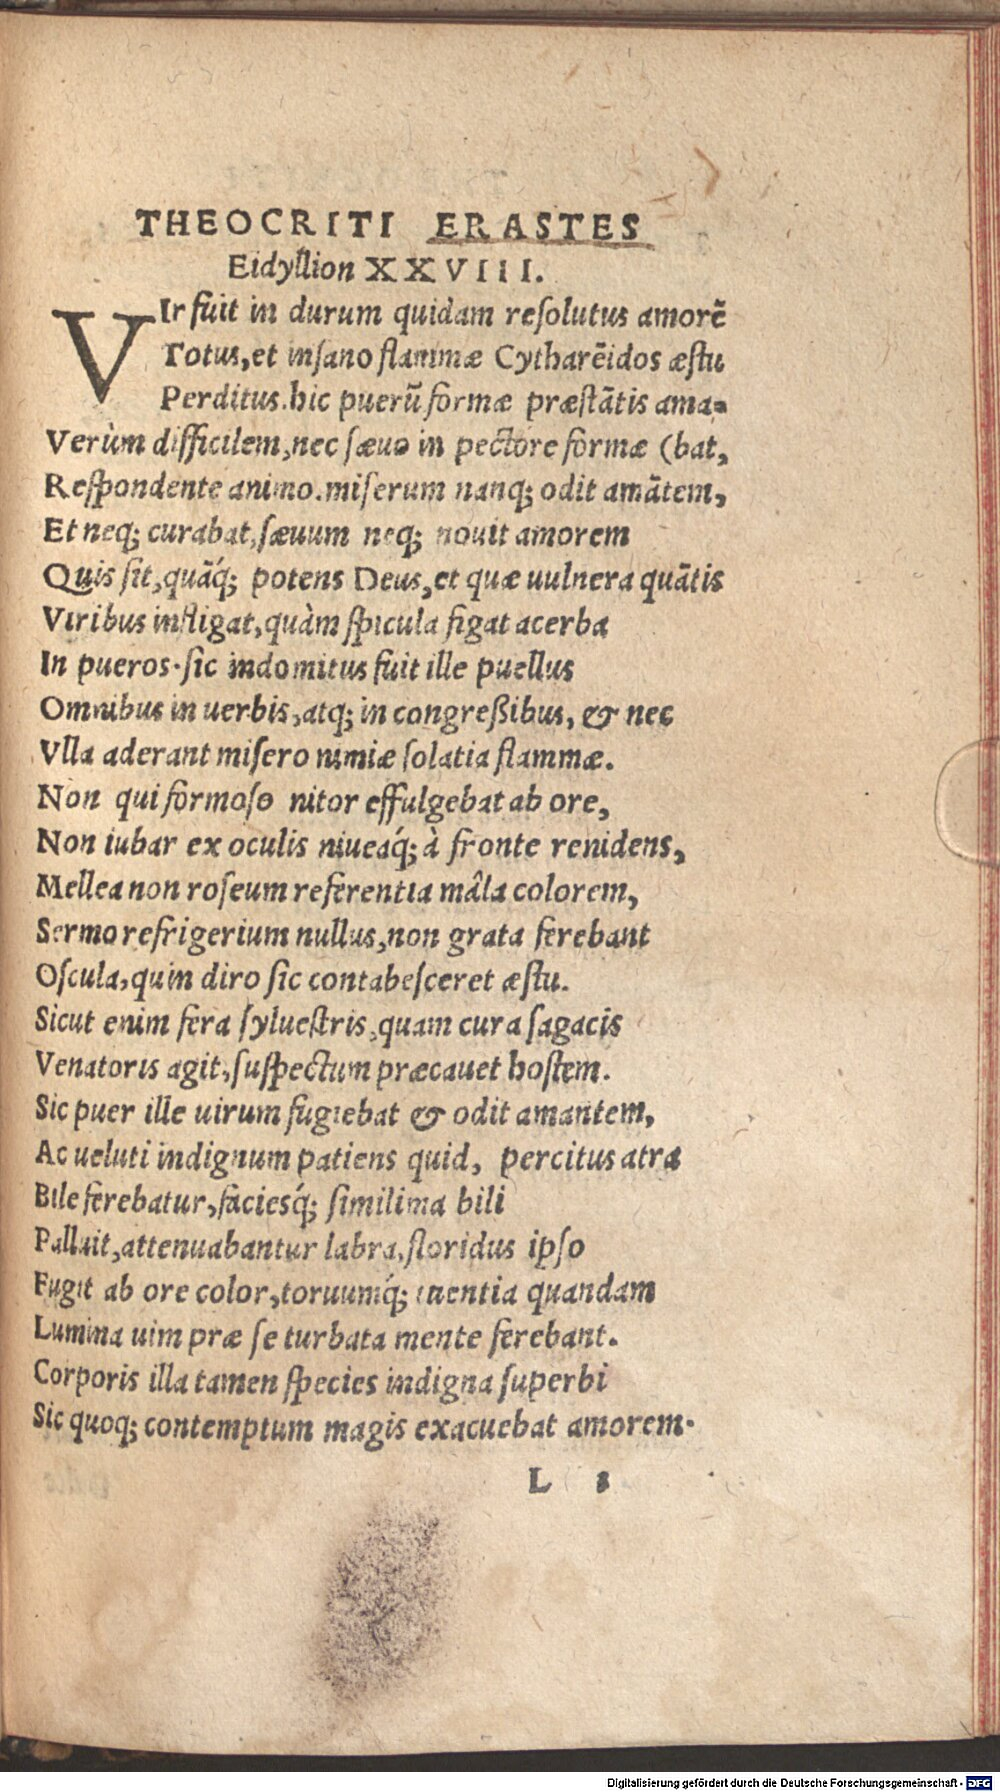 THEOCRITI ERASTES
Eidyllion XXVIII.
VIr fuit in durum quidam resolutus amorẽ
Totus, et insano flammæ Cytharẽidos æstu
Perditus. hic puerũ formæ præstãtis ama-
Verùm difficilem, nec sæuo in pectore formæ (bat,
Respondente animo. miserum nanq; odit amãtem,
Et neq; curabat, sæuum neq; nouit amorem
Quis sit, quãq́; potens Deus, et quæ uulnera quãtis
Viribus infligat, quàm spicula figat acerba
In pueros. sic indomitus fuit ille puellus
Omnibus in uerbis, atq; in congreßibus, & nec
Vlla aderant misero nimiæ solatia flammæ.
Non qui formoso nitor effulgebat ab ore,
Non iubar ex oculis niueaq́; à fronte renidens,
Mellea non roseum referentia mâla colorem,
Sermo refrigerium nullus, non grata ferebant
Oscula, quin diro sic contabesceret æstu.
Sicut enim fera syluestris, quam cura sagacis
Venatoris agit, suspectum præcauet hostem.
Sic puer ille uirum fugiebat & odit amantem,
Ac ueluti indignum patiens quid, percitus atra
Bile ferebatur, faciesq́; similima bili
Palluit, attenuabantur labra, floridus ipso
Fugit ab ore color, toruumq́; tuentia quandam
Lumina uim præ se turbata mente ferebant.
Corporis illa tamen species indigna superbi
Sic quoq; contemptum magis exacuebat amorem.
L
Digitalisierung gefördert durch die Deutsche Forschungsgemeinschaft - DFG